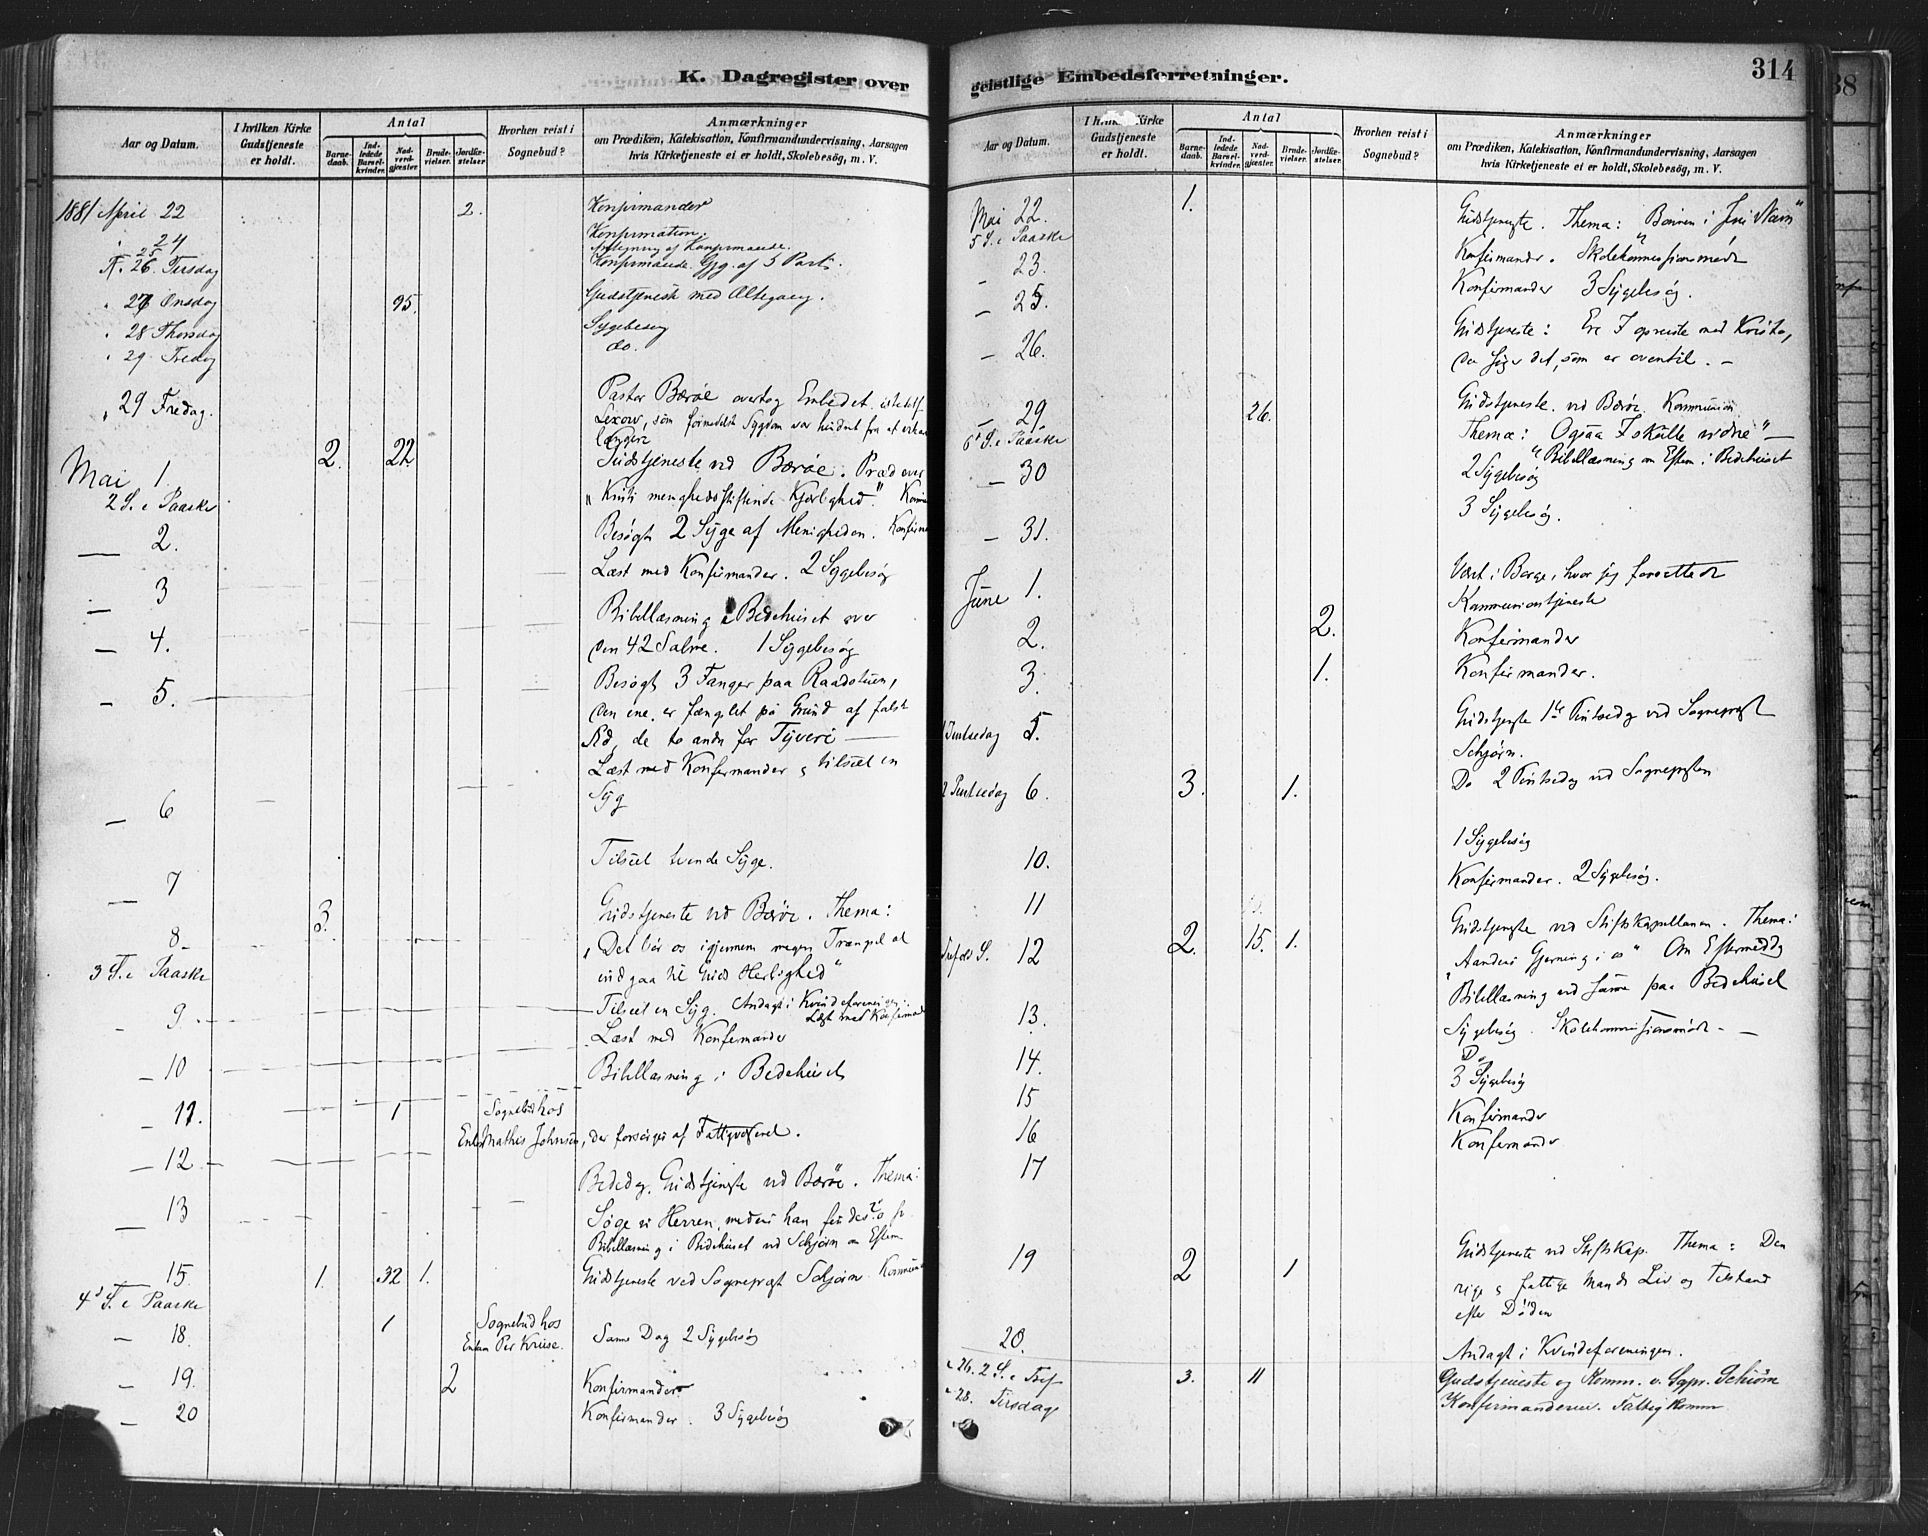 K. Dagregister over
Aar og Datum.
I hvilken Kirke Gudstjeneste er holdt.
Antal
Barne-daab.
Ind-ledede Barsel-kvinder.
Nad-verd-gjæster.
Brude-vielser.
Jordfæ-stelser.
Hvorhen reist i Sognebud?
Anmærkninger
om Prædiken, Katekisation, Konfirmandundervisning, Aarsagen
hvis Kirketjeneste ei er holdt, Skolebesög, m. V.
1881 April 22 2. Konfirmander
" 24 Konfirmation.
25
26. Tirsdag Konfirmande.
" 27 Onsdag 95. Gudstjeneste med Altergang.
" 28 Thorsdag Sygebesög
" 29 Fredag do.
" 29 Fredag. Pastor Barøe overtog Embedet istedetf.
Lexow, som formedelst Sygdom var hindret fra at virke
længere
Mai 1. 2. 22 Gudstjeneste ved Barøe. Præd over
2 S. e Paaske "Kristi menighedsstiftende Kjærlighed".
— 2. Besøgt 2 Syge af Menigheden.
— 3 Læst med Konfirmander. 2 Sygebesög
— 4. Bibellæsning i Bedehuset over
den 42 Salme. 1 Sygebesög
— 5. Besögt 3 Fanger paa Raadstuen,
den ene er fænglet på Grund af falsk
Ed, de to andre for Tyveri —
Læst med Konfirmander og tilseet en
Syg
— 6
— 7 Tilseet tvende Syge.
8 3. Gudstjeneste ved Barøe. Thema:
3 S. e Paaske "Det bör os igjennem megen Trængsel at
indgaa til Guds Herlighed"
— 9. Tilseet en Syg. Andagt i Kvindeforeningen.
Læst med Konfirmander
Læst med Konfirmander
— 10 Bibellæsning i Bedehuset
— 11. 1 Sognebud hos
Mathis Johnsen, der forsörges af Fattigvæsenet.
— 12
— 13 Bededag. Gudstjeneste ved Barøe. Thema:
Söge vi Herren, medens han findes
Bibellæsning i Bedehuset ved Schjörn om Efterm
15 1. 32 1. Gudstjeneste ved Sogneprest Schjörn.
4' S. e Paaske
— 18. 1 Sognebud hos Samme Dag 2 Sygebesög
Per Kruse.
— 19. 2 Konfirmander
— 20 Konfirmander. 3 Sygebesög
geistlige Embedsforretninger.
314
Aar og Datum.
I hvilken Kirke Gudstjeneste er holdt.
Antal
Barne-daab.
Ind-ledede Barsel-kvinder.
Nad-verd-gjæster.
Brude-vielser.
Jordfæ-stelser.
Hvorhen reist i Sognebud?
Anmærkninger
om Prædiken, Katekisation, Konfirmandundervisning, Aarsagen
hvis Kirketjeneste ei er holdt, Skolebesög, m. V.
Mai 22. 1. Gudstjeneste. Thema: "Bönnen i Jesu Navn"
5 S. e Paaske
— 23. Konfirmander. Skolekommissionsmöde
— 25. Konfirmander 3 Sygebesög.
— 26. Gudstjeneste: Ere I opreiste med Kristo,
da söger det, som er oventil. —
— 29 26. Gudstjeneste ved Barøe. Kommunion
6' S. e Paaske Thema: "Ogsaa I skulle vidne" —
Bibellæsning om Eftm. i Bedehuset
— 30 2 Sygebesög
— 31. 3 Sygebesög.
June 1. Været i Borge, hvor jeg forrettede
Kommunionstjeneste
2. 2. Konfirmander
3. 1. Konfirmander.
1 Pintsedag 5. Gudstjeneste 1ste Pintsedag ved Sogneprest
Schjörn.
2 Pintsedag 6. 3. 1. Do 2 Pintsedag ved Sognepresten
10. 1 Sygebesög
11 Konfirmander. 2 Sygebesög.
Tref. S. 12 2. 15. 1. Gudstjeneste ved Stiftskapellanen. Thema:
"Aandens Gjerning i os" Om Eftermiddag
Bibellæsning ved samme paa Bedehuset
13. Sygebesög. Skolekommissionsmöde —
14. Do
15 3 Sygebesög
16 Konfirmander
17 Konfirmander
19 2 1 Gudstjeneste ved Stiftskap. Thema: Den
rige og fattige Mands Liv og Tilstand
efter Döden
20. Andagt i Kvindeforeningen.
" 26. 2 S. e Tref 3. 11 Gudstjeneste og Komm. v. Sgpr. Schiörn
" 28. Tirsdag Konfirmanderne. Fattigkomm.